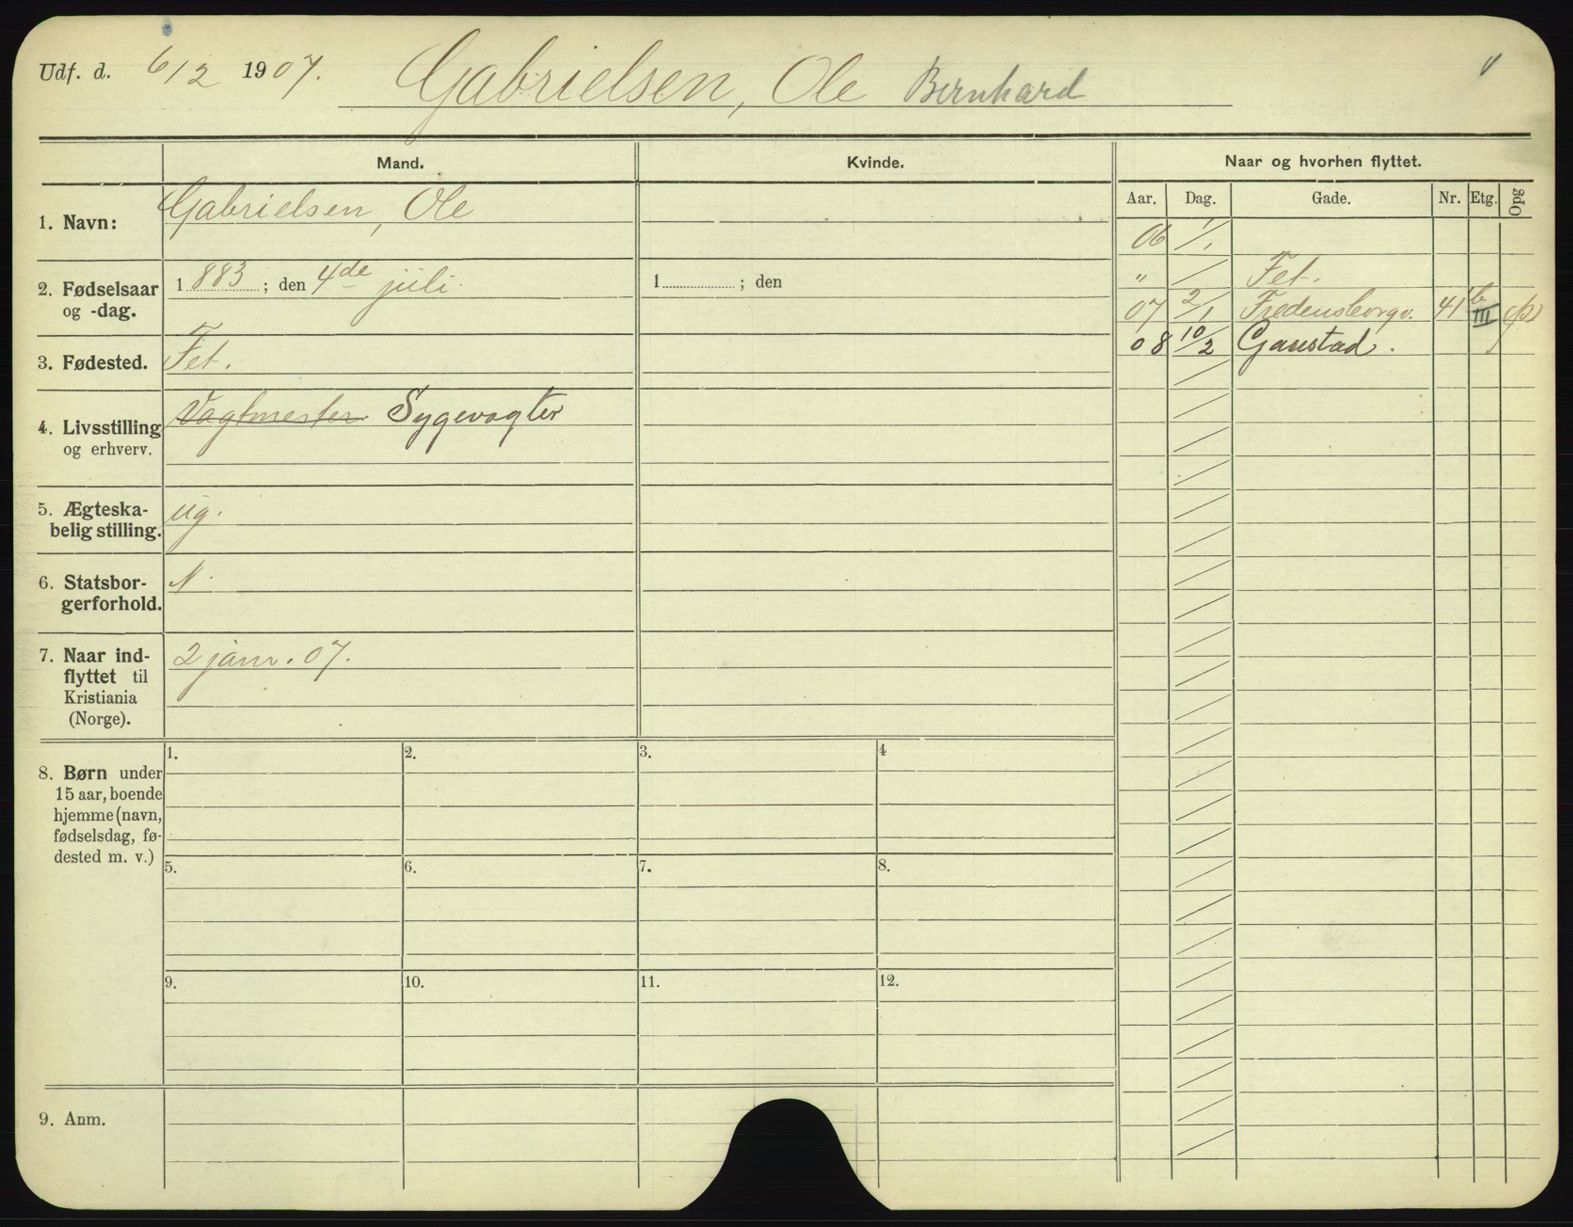 Udf. d. 6/2 1907. Gabrielsen, Ole Bernhard
Mand. Kvinde. Naar og hvorhen flyttet.
Aar. Dag. Gade. Nr. Etg. Opg
1. Navn: Gabrielsen, Ole
06 1/1
" Fet.
07 2/1 Fredensborgv. 41b III
08 10/2 Gaustad.
2. Fødselsaar og -dag. 1883; den 4de juli 1 ; den
3. Fødested. Fet.
4. Livsstilling og erhverv. Vagtmester Sygevogter
5. Ægteska-
belig stilling. ug.
6. Statsbor-
gerforhold. N.
7. Naar ind-
flyttet til
Kristiania
(Norge). 2 janr. 07.
8. Børn under
15 aar, boende
hjemme (navn,
fødselsdag, fø-
dested m. v.)
1. 2. 3. 4
5. 6. 7. 8.
9. 10. 11. 12.
9. Anm.